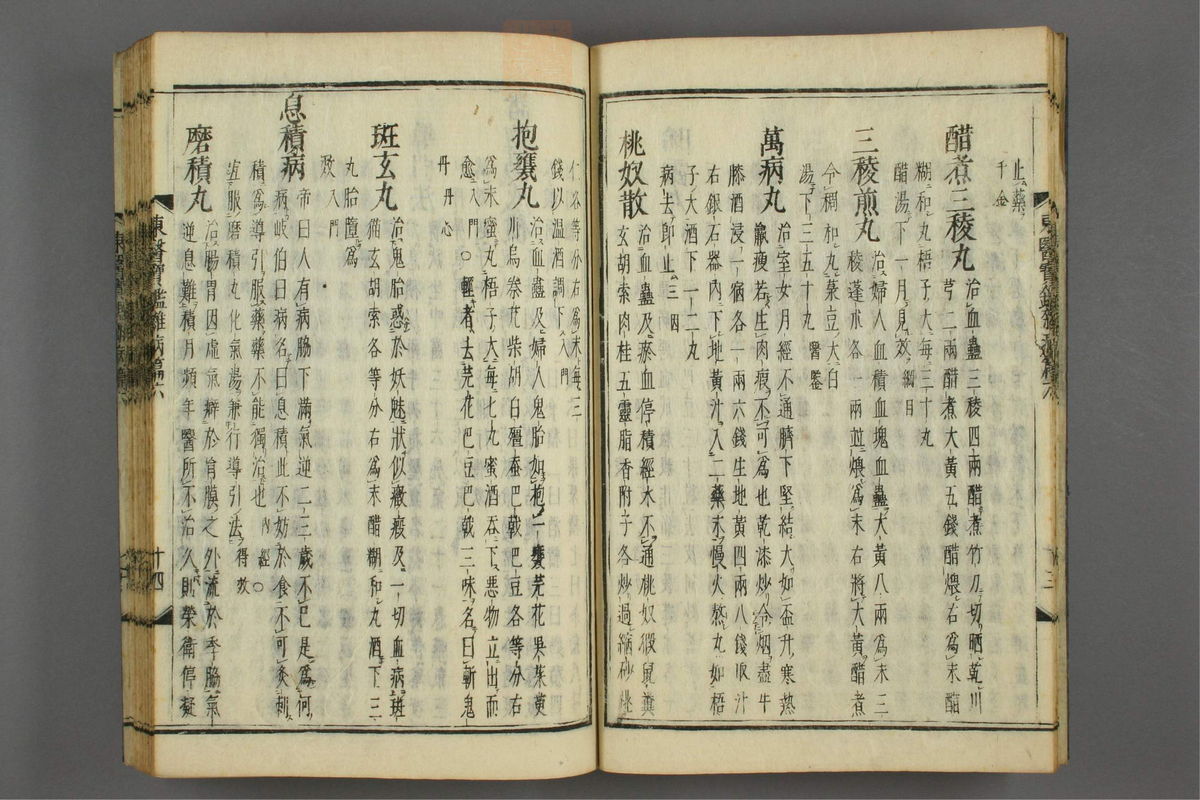 止藥
千金
醋煮三稜丸 治血蠱三稜四兩醋煮竹刀切晒乾川
芎二兩醋煮大黃五錢醋煨右爲末醋
糊和丸梧子大每三十丸
醋湯下一月見效 綱目
三稜煎丸 治婦人血積血塊血蠱大黃八兩爲末三
稜蓬朮各一兩並煨爲末右將大黃醋煮
令稠和丸菉豆大白
湯下三五十丸 醫鑑
萬病丸 治室女月經不通臍下堅結大如盃升寒熱
羸瘦若生肉瘕不可爲也乾漆炒令烟盡牛
膝酒浸一宿各一兩六錢生地黃四兩八錢取汁
右銀石器內下地黃汁入二藥末慢火熬丸如梧
子大酒下一二丸
病去卽止 三因
桃奴散 治血蠱及瘀血停積經水不通桃奴猳鼠糞
玄胡索肉桂五靈脂香附子各炒過縮砂桃
仁各等分右爲末每三
錢以溫酒調下 入門
抱甕丸 治血蠱及婦人鬼胎如抱一甕芫花吳茱萸
川烏秦艽柴胡白殭蚕巴戟巴豆各等分右
爲末蜜丸梧子大每七丸蜜酒吞下惡物立出而
愈 入門 ○輕者去芫花巴豆巴戟三味名曰斬鬼
丹 丹心
斑玄丸 治鬼胎惑於妖魅狀似癥瘕及一切血病斑
猫玄胡索各等分右爲末醋糊和丸酒下三
丸胎墮爲
效 入門
息積病 帝曰人有病脇下滿氣逆二三歲不已是爲何
病岐伯曰病名曰息積此不妨於食不可灸刺
積爲導引服藥藥不能獨治也 內經 ○
宜服磨積丸化氣湯兼行導引法 得效
磨積丸 治腸胃因虛氣癖於肓膜之外流於季脇氣
逆息難積月頻年醫所不治久則榮衛停凝
東醫寶鑑雜病篇六
十四